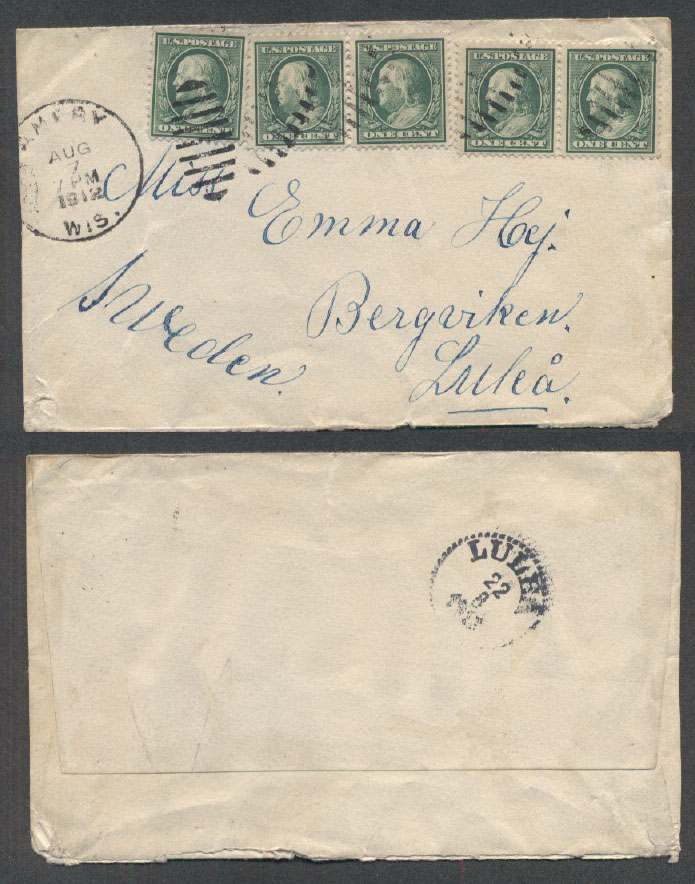 U.S. POSTAGE
ONE CENT
U.S. POSTAGE
ONE CENT
U.S. POSTAGE
ONE CENT
U.S. POSTAGE
ONE CENT
U.S. POSTAGE
ONE CENT
AUG
7
7 PM
1912
WIS.
Miss
Emma Hej.
Bergviken.
Luleå.
Sweden.
LULEÅ
22
8